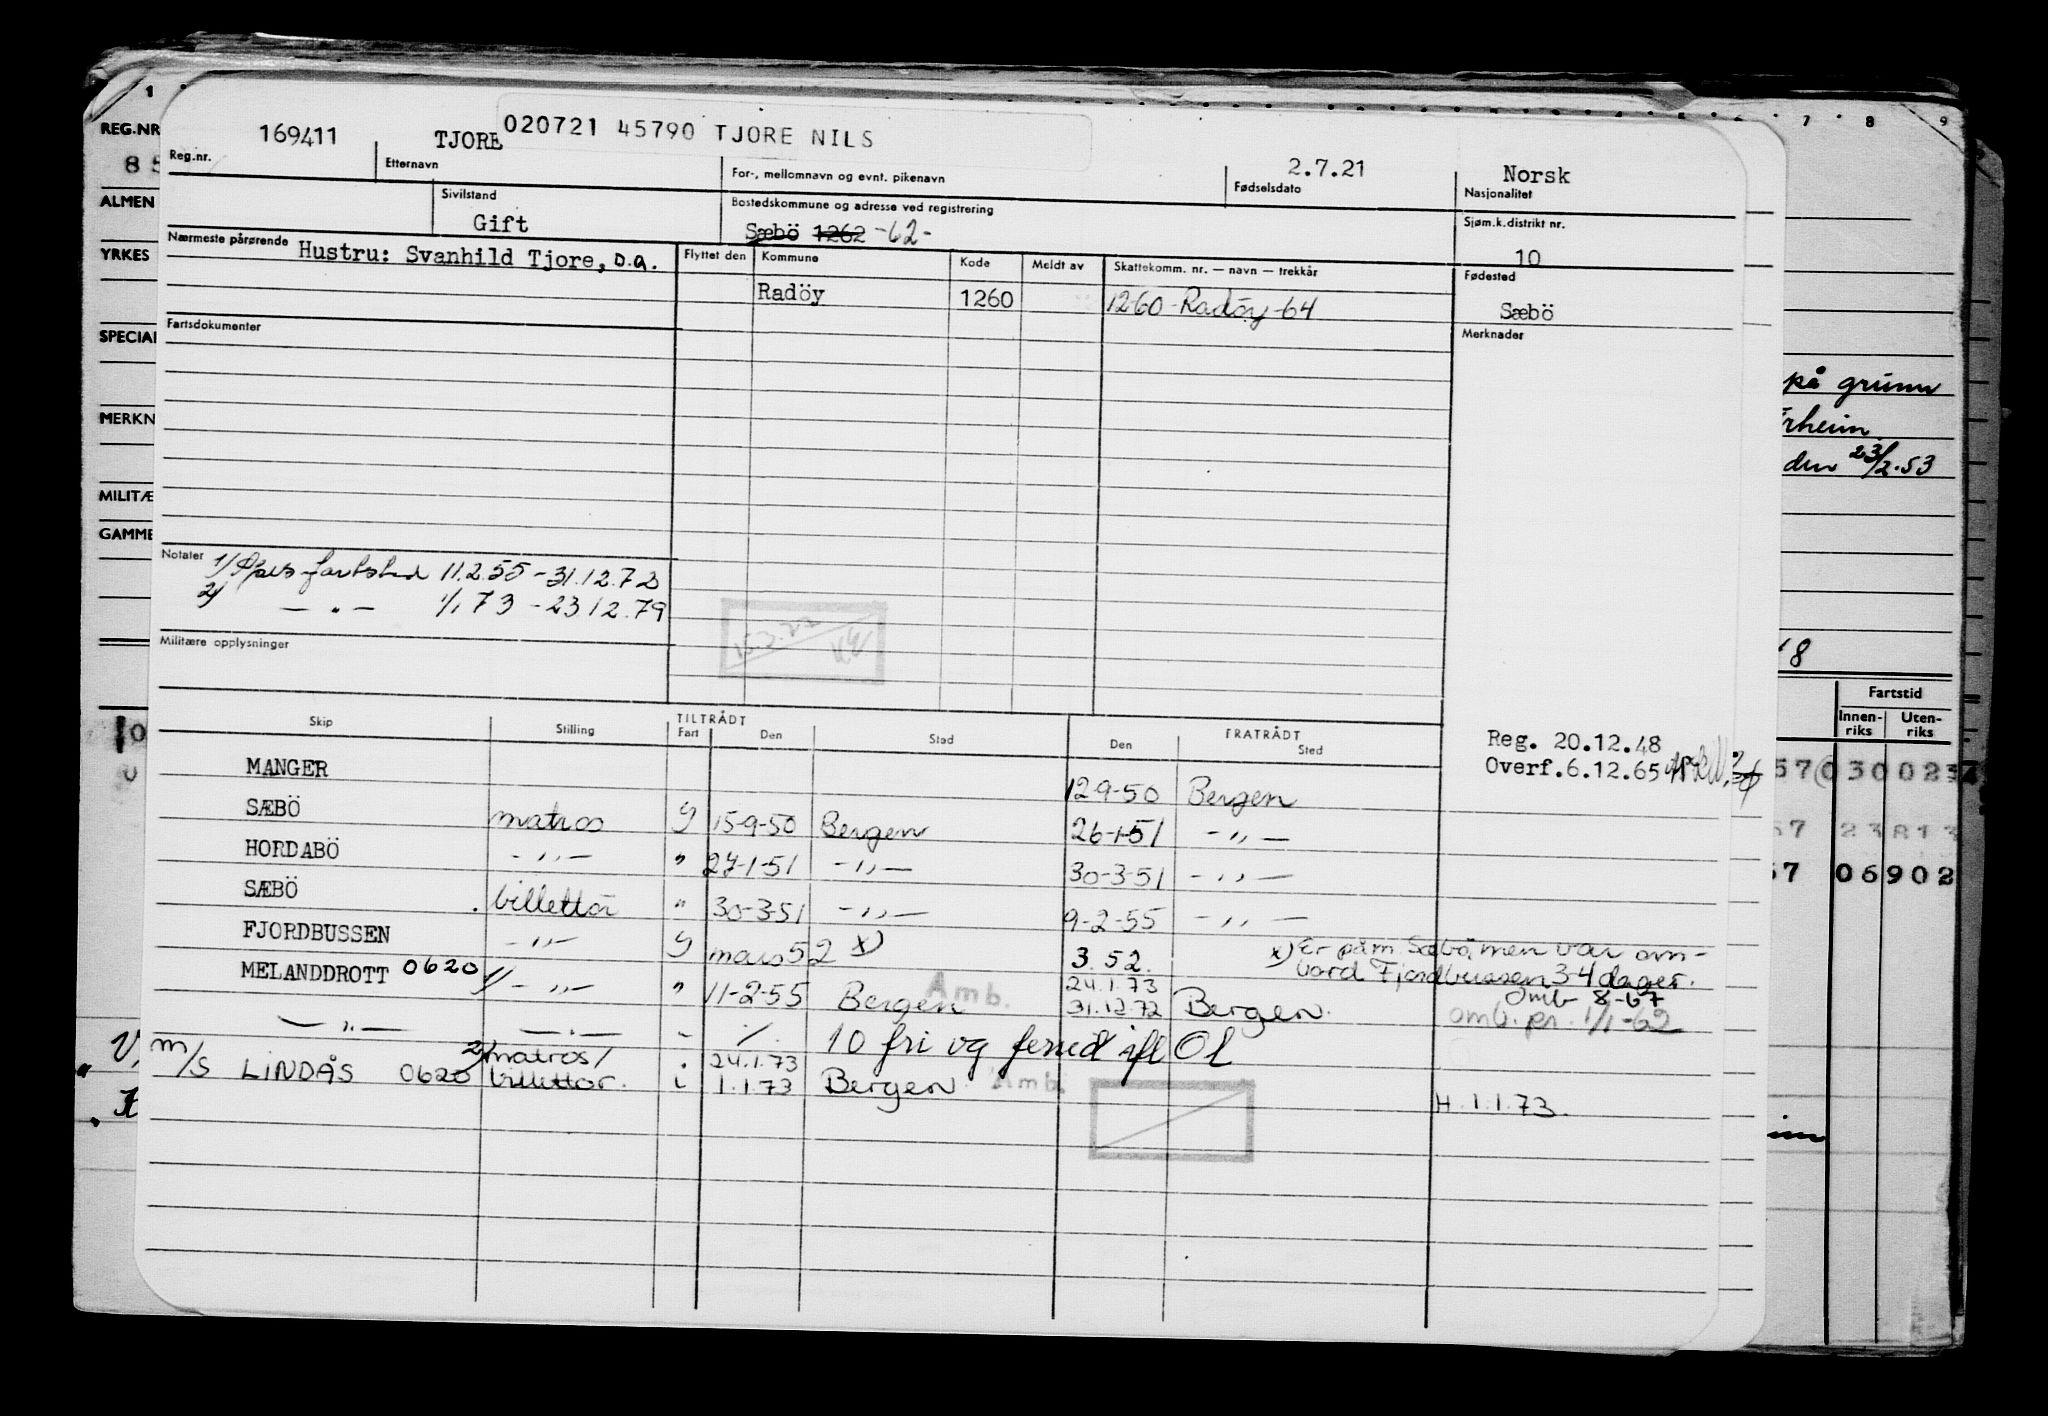 1 7 8 9
REG.NR
85
169411 TJORE 020721 45790 TJORE NILS 2.7.21 Norsk
Reg.nr. Etternavn For-, mellomnavn og evnt. pikenavn Fødselsdato Nasjonalitet
ALMEN
Sivilstand Bostedskommune og adresse ved registrering Sjøm.k.distrikt nr.
Gift Sæbö 1262 -62- 10
YRKES
Nærmeste pårørende Hustru: Svanhild Tjore, D.a. Flyttet den Kommune Kode Meldt av Skattekomm. nr. — navn — trekkår Fødested
Radöy 1260 1260-Radöy-64 Sæbö
SPECIAL
Fartsdokumenter Merknader
på grunn
MERKN
rheim
den 23/2-53
MILITÆ
GAMME
Notater 1/ fartstid 11.2.55-31.12.72
2/ — " — 1/1 73 - 23/12.79
15.2.22
Militære opplysninger
8
Fartstid
Innen- Uten-
riks riks
Skip Stilling TILTRÅDT FRATRÅDT
Fart Den Sted Den Sted
Reg. 20.12.48
Overf.6.12.65
57 030023
MANGER 12-9-50 Bergen
SÆBÖ matros 15-9-50 Bergen 26-1-51 -,,-
67 23813
HORDABÖ -,,- " 27-1-51 -,,- 30-3-51 -,,-
67 06902
SÆBÖ billettör " 30-3-51 -,,- 9-2-55 -,,-
FJORDBUSSEN -,,- mars 52 x) 3.52. x) Er påm. Sæbö, men var om-
bord Fjordbussen 3-4 dager.
MELANDDROTT 0620 1/ -,,- " 11-2-55 Bergen Amb. 24.1.73
31.12.72 Bergen.
omb 8-67
omb. pr. 1/1-62
—,,— —,,— - ./. 10 fri og feried
m/s LINDÅS 0620 2/ matros/
billettör. i 24.1.73
1.1.73 Bergen Amb.
H.1.1.73.